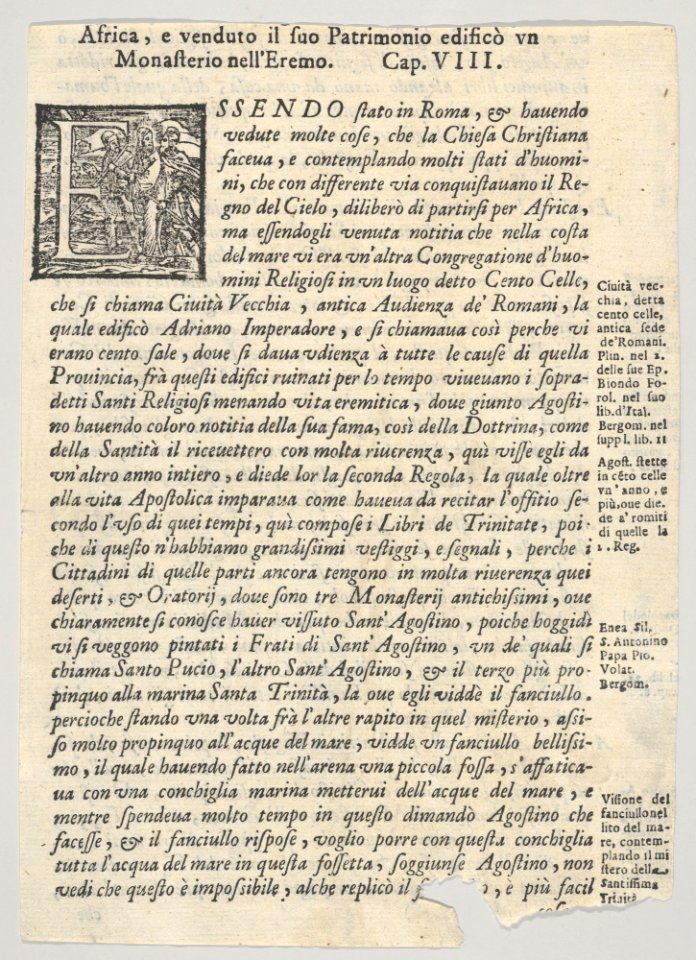 Africa, e venduto il ſuo Patrimonio edificò vn
Monaſterio nell'Eremo. Cap. VIII.
ESSENDO ſtato in Roma, & hauendo
vedute molte coſe, che la Chieſa Chriſtiana
faceua, e contemplando molti ſtati d'huomi-
ni, che con differente via conquiſtauano il Re-
gno del Cielo, diliberò di partirſi per Africa,
ma eſſendogli venuta notitia che nella coſta
del mare vi era vn'altra Congregatione d'huo-
mini Religioſi in vn luogo detto Cento Celle,
che ſi chiama Ciuità Vecchia, antica Audienza de' Romani, la
quale edificò Adriano Imperadore, e ſi chiamaua così perche vi
erano cento ſale, doue ſi daua vdienza à tutte le cauſe di quella
Prouincia, frà queſti edifici ruinati per lo tempo viueuano i ſopra-
detti Santi Religioſi menando vita eremitica, doue giunto Agoſti-
no hauendo coloro notitia della ſua fama, così della Dottrina, come
della Santità il riceuettero con molta riuerenza, quì viſſe egli da
vn'altro anno intiero, e diede lor la ſeconda Regola, la quale oltre
alla vita Apoſtolica imparaua come haueua da recitar l'offitio ſe-
condo l'vſo di quei tempi, quì compoſe i Libri de Trinitate, poi-
che di queſto n'habbiamo grandiſſimi veſtiggi, e ſegnali, perche i
Cittadini di quelle parti ancora tengono in molta riuerenza quei
deſerti, & Oratorij, doue ſono tre Monaſterij antichiſſimi, oue
chiaramente ſi conoſce hauer viſſuto Sant' Agoſtino, poiche hoggidì
vi ſi veggono pintati i Frati di Sant'Agoſtino, vn de' quali ſi
chiama Santo Pucio, l'altro Sant'Agoſtino, & il terzo più pro-
pinquo alla marina Santa Trinità, la oue egli viddè il fanciullo.
percioche ſtando vna volta frà l'altre rapito in quel miſterio, aſſi-
ſo molto propinquo all'acque del mare, vidde vn fanciullo belliſſi-
mo, il quale hauendo fatto nell'arena vna piccola foſſa, s'affatica-
ua con vna conchiglia marina metterui dell'acque del mare, e
mentre ſpendeua molto tempo in queſto dimandò Agoſtino che
faceſſe, & il fanciullo riſpoſe, voglio porre con queſta conchiglia
tutta l'acqua del mare in queſta foſſetta, ſoggiunſe Agoſtino, non
vedi che queſto è impoſſibile, alche replicò il , è più facil
Ciuità vec-
chia, detta
cento celle,
antica ſede
de'Romani.
Plin. nel 2.
delle ſue Ep.
Biondo Fo-
rol. nel ſuo
lib.d'Ital.
Bergom. nel
ſuppl. lib. 11
Agoſt. ſtette
in cẽto celle
vn' anno, e
più, oue die.
de a' romiti
di quelle la
2. Reg.
Enea Sil.
S. Antonino
Papa Pio.
Volat.
Bergom.
Viſione del
fanciullo nel
lito del ma-
re, contem-
plando il mi
ſtero della
Santiſſima
Trinità